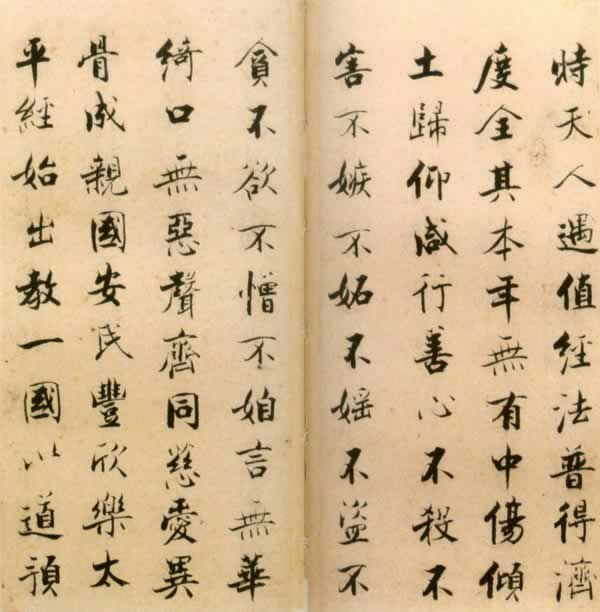 時天人遇值經法普得濟
度全其本年無有中傷傾
土歸仰咸行善心不殺不
害不嫉不妬不婬不盜不
貪不欲不憎不㚲言無華
綺口無惡聲齊同慈愛異
骨成親國安民豐欣樂太
平經始出教一國以道預